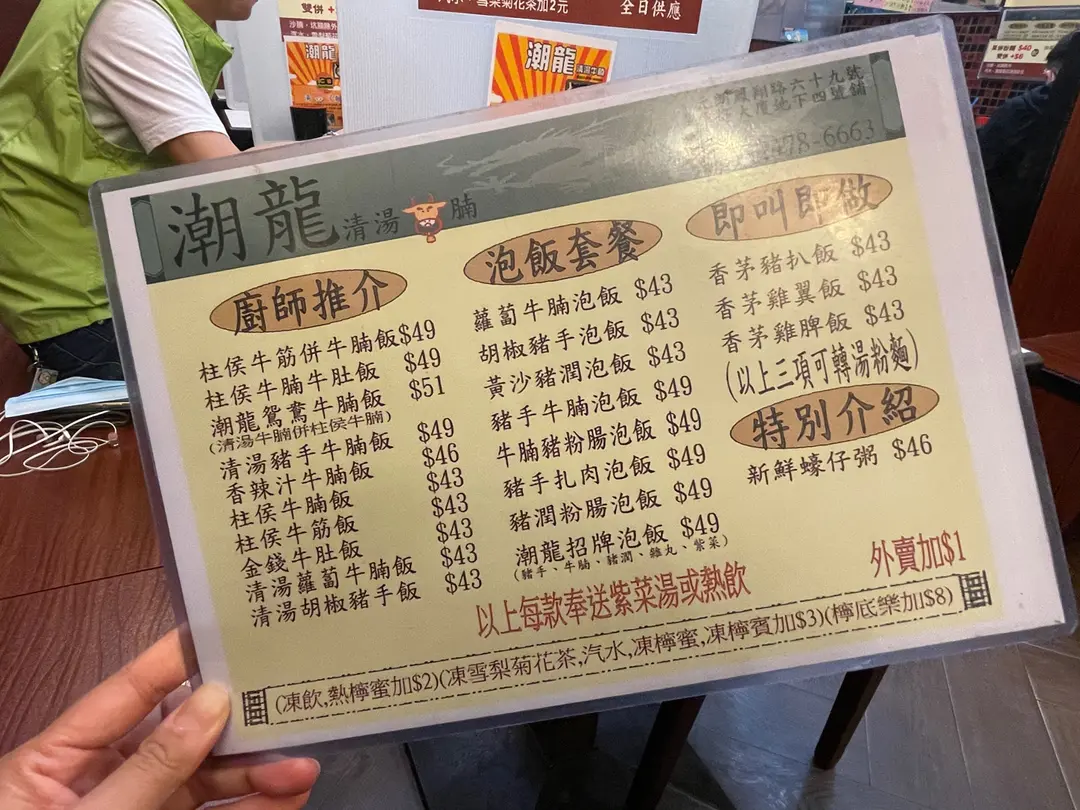 雪梨菊花茶加2元
全日供應
潮龍
清湯牛腩
潮龍
六十九號
地下四號舖
478-6663
潮龍清湯腩
廚師推介
柱侯牛筋併牛腩飯$49
柱侯牛腩牛肚飯 $49
潮龍鴛鴦牛腩飯 $51
(清湯牛腩併柱侯牛腩)
清湯豬手牛腩飯 $49
香辣汁牛腩飯 $46
柱侯牛腩飯 $43
柱侯牛筋飯 $43
金錢牛肚飯 $43
清湯蘿蔔牛腩飯 $43
清湯胡椒豬手飯 $43
泡飯套餐
蘿蔔牛腩泡飯 $43
胡椒豬手泡飯 $43
黃沙豬潤泡飯 $43
豬手牛腩泡飯 $49
牛腩豬粉腸泡飯 $49
豬手扎肉泡飯 $49
豬潤粉腸泡飯 $49
潮龍招牌泡飯 $49
(豬手、牛腩、豬潤、雞丸、紫菜)
即叫即做
香茅豬扒飯 $43
香茅雞翼飯 $43
香茅雞髀飯 $43
(以上三項可轉湯粉麵)
特別介紹
新鮮蠔仔粥 $46
以上每款奉送紫菜湯或熱飲
外賣加$1
(凍飲,熱檸蜜加$2)(凍雪梨菊花茶,汽水,凍檸蜜,凍檸賓加$3)(檸底樂加$8)